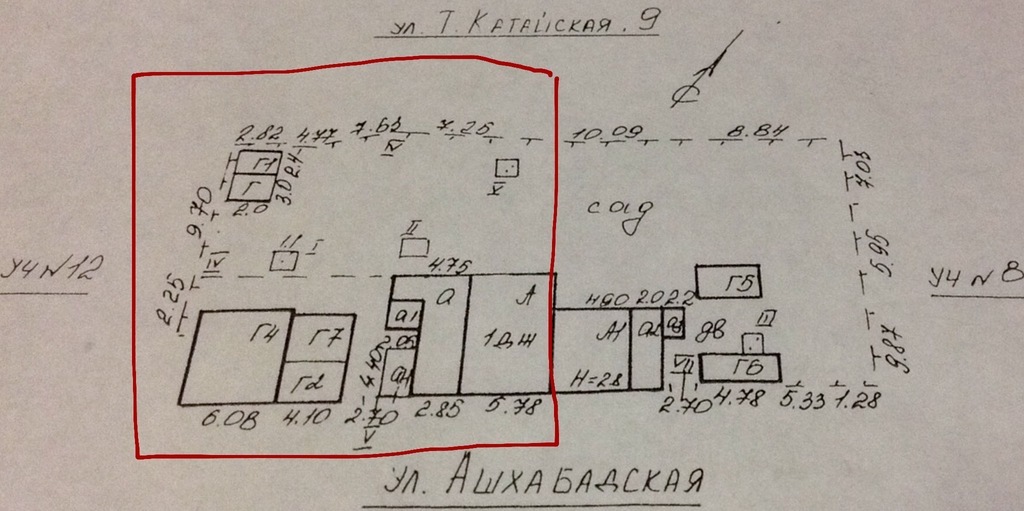 ул. Т. Катайская. 9
С
2.82 4.77 7.63 7.25 10.09 8.84
IV
Г1 2.4
Г 3.0
2.0
V
7.03
9.70
сад
II
I
IV
уч N12
4.75
5.95
Г5
уч N 8
2.25
Г4 Г7
а А
4.90 2.0 2.2
а1
А1 а2 а3 дв
III
1эж
2.05
4.40
Г2
а4
Н=2.8
VII
Г6
9.87
6.08 4.10 2.70 2.85 5.78 2.70 4.78 5.33 1.28
V
ул. Ашхабадская